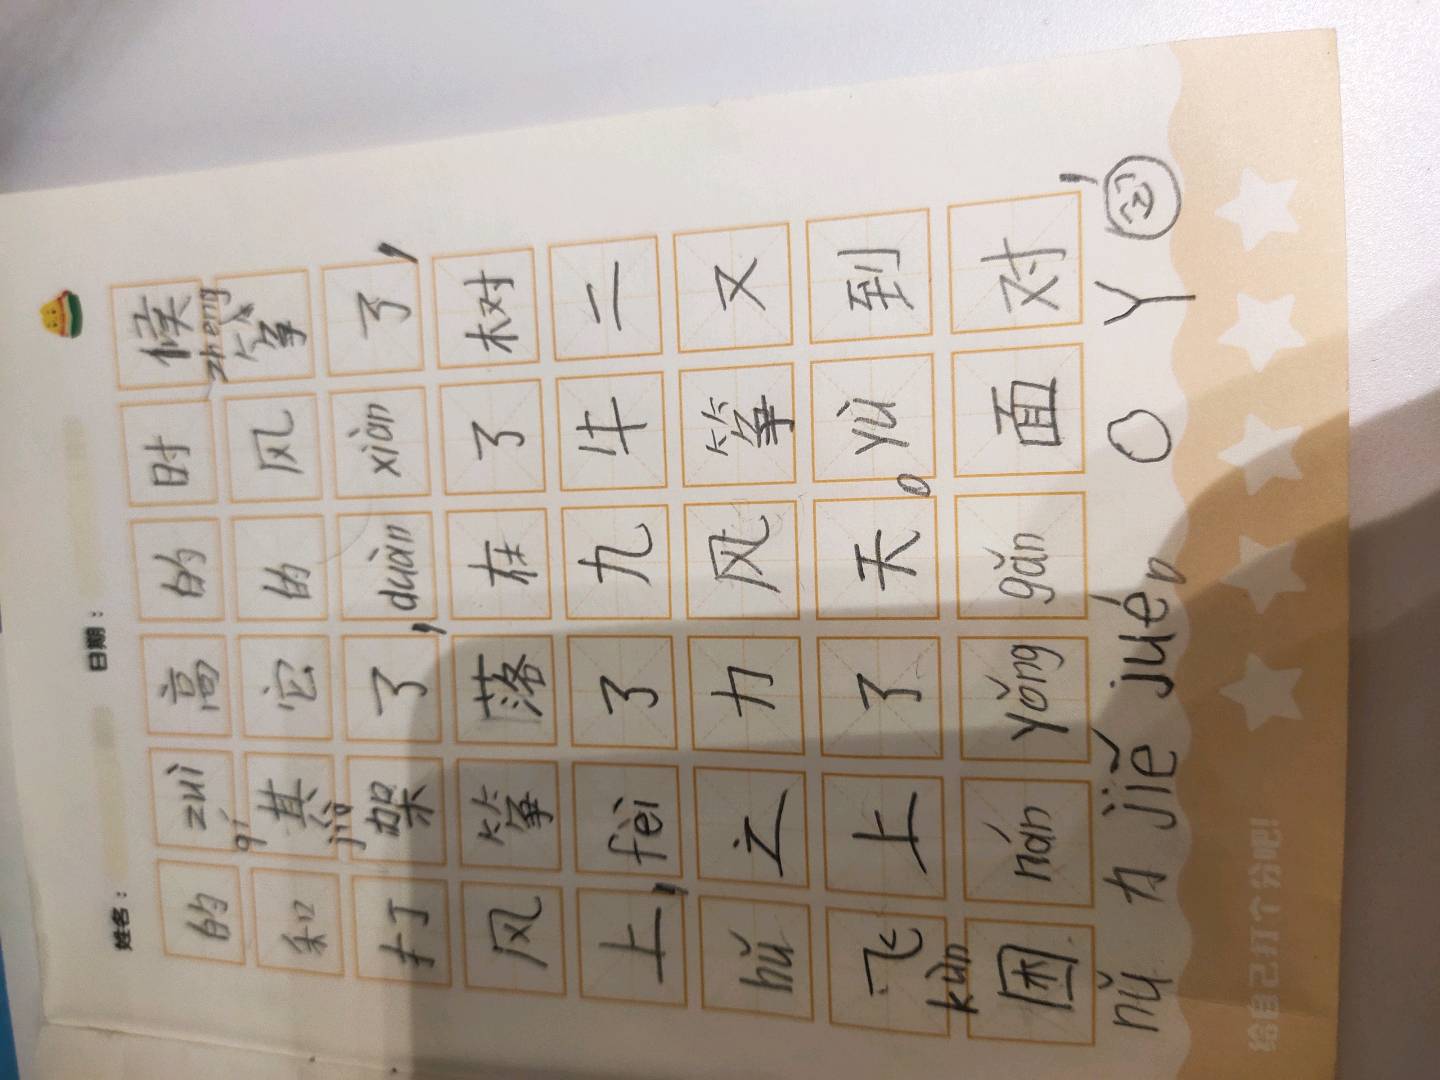 姓名： 日期：
的zuì高的时候
qí zheng
和其它的风筝
打架了，duàn xiàn了，
风筝落在了树
上，fèi了九牛二
hǔ之力风筝又
飞上了天。yù到
kùn
困nán yǒng gǎn面对，
nǔ力jiě jué。
O Y
给自己打个分吧！